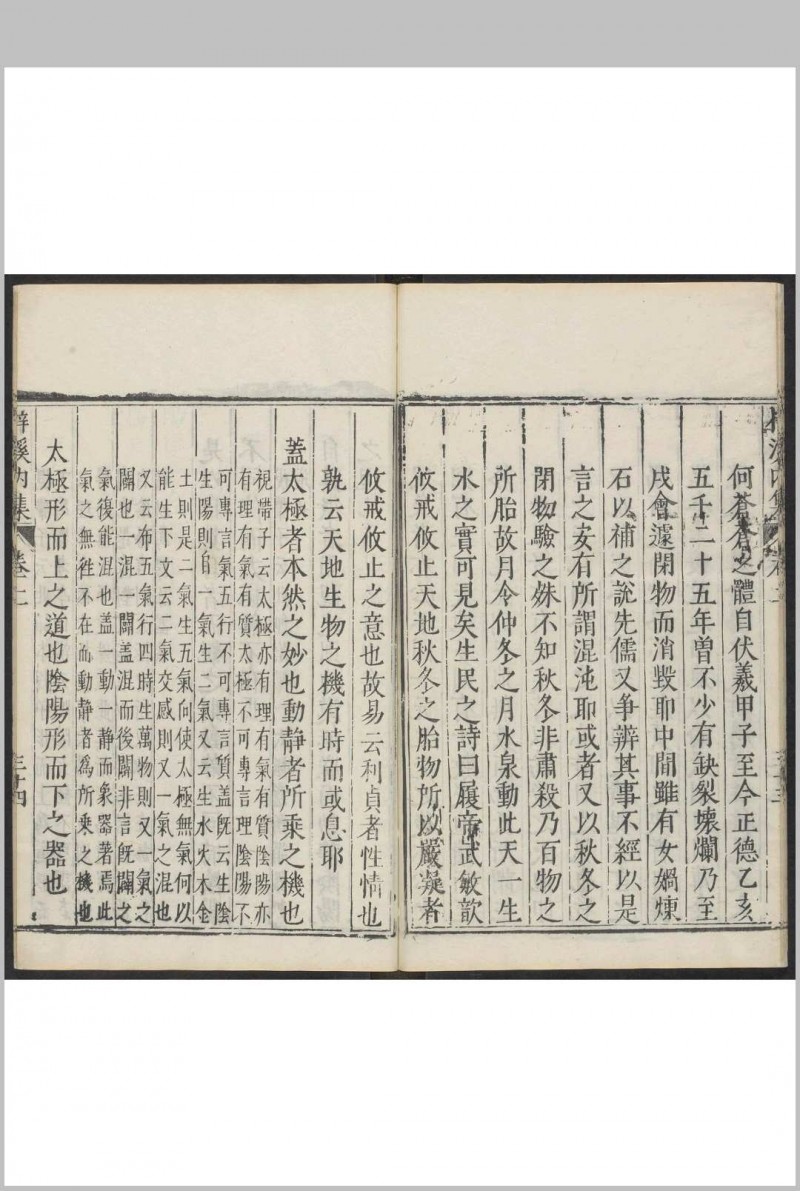 何蒼蒼之體自伏羲甲子至今正德乙亥
五千二十五年曾不少有缺裂壞爛乃至
戌會遽閉物而消毀耶中間雖有女媧煉
石以補之說先儒又爭辨其事不經以是
言之安有所謂混沌耶或者又以秋冬之
閉物驗之殊不知秋冬非肅殺乃百物之
所胎故月令仲冬之月水泉動此天一生
水之實可見矣生民之詩曰履帝武敏歆
攸戒攸止天地秋冬之胎物所以嚴凝者
攸戒攸止之意也故易云利貞者性情也
孰云天地生物之機有時而或息耶
蓋太極者本然之妙也動靜者所乘之機也
視帶子云太極亦有理有氣有質陰陽亦
有理有氣有質太極不可專言理陰陽不
可專言氣五行不可專言質蓋旣云生陰
生陽則自一氣生二氣又云生水火木金
土則是二氣生五氣向使太極無氣何以
能生下文云二氣交感則又一氣之混也
又云布五氣行四時生萬物則又一氣之
闢也一混一闢蓋混而後闢非言旣闢之
氣復能混也蓋一動一靜而象器著焉此
氣之無徃不在而動靜者為所乘之機也
太極形而上之道也陰陽形而下之器也
梓溪內集
卷二
三十四